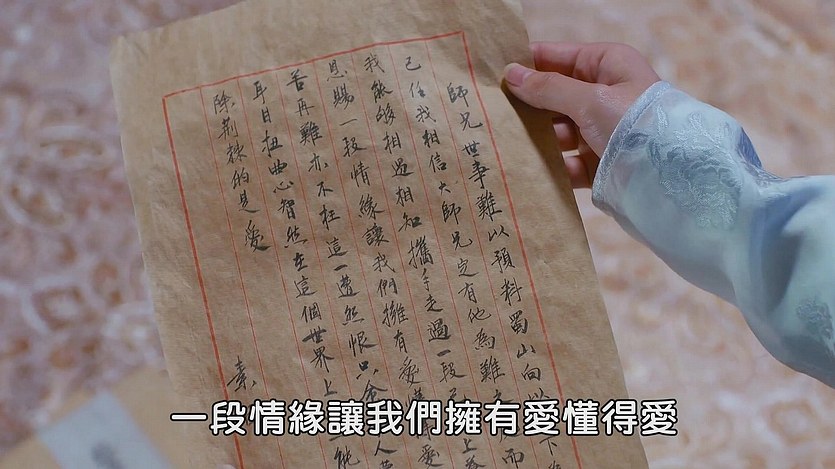 師兄世事難以預料蜀山向以
己任我相信大師兄定有他為難
我能够相遇相知攜手走過一段
恩賜一段情緣讓我們擁有愛
苦再難亦不枉這一遭然恨只會
耳目扭曲心智然在這個世界上
除荆棘的是愛
素
一段情緣讓我們擁有愛懂得愛